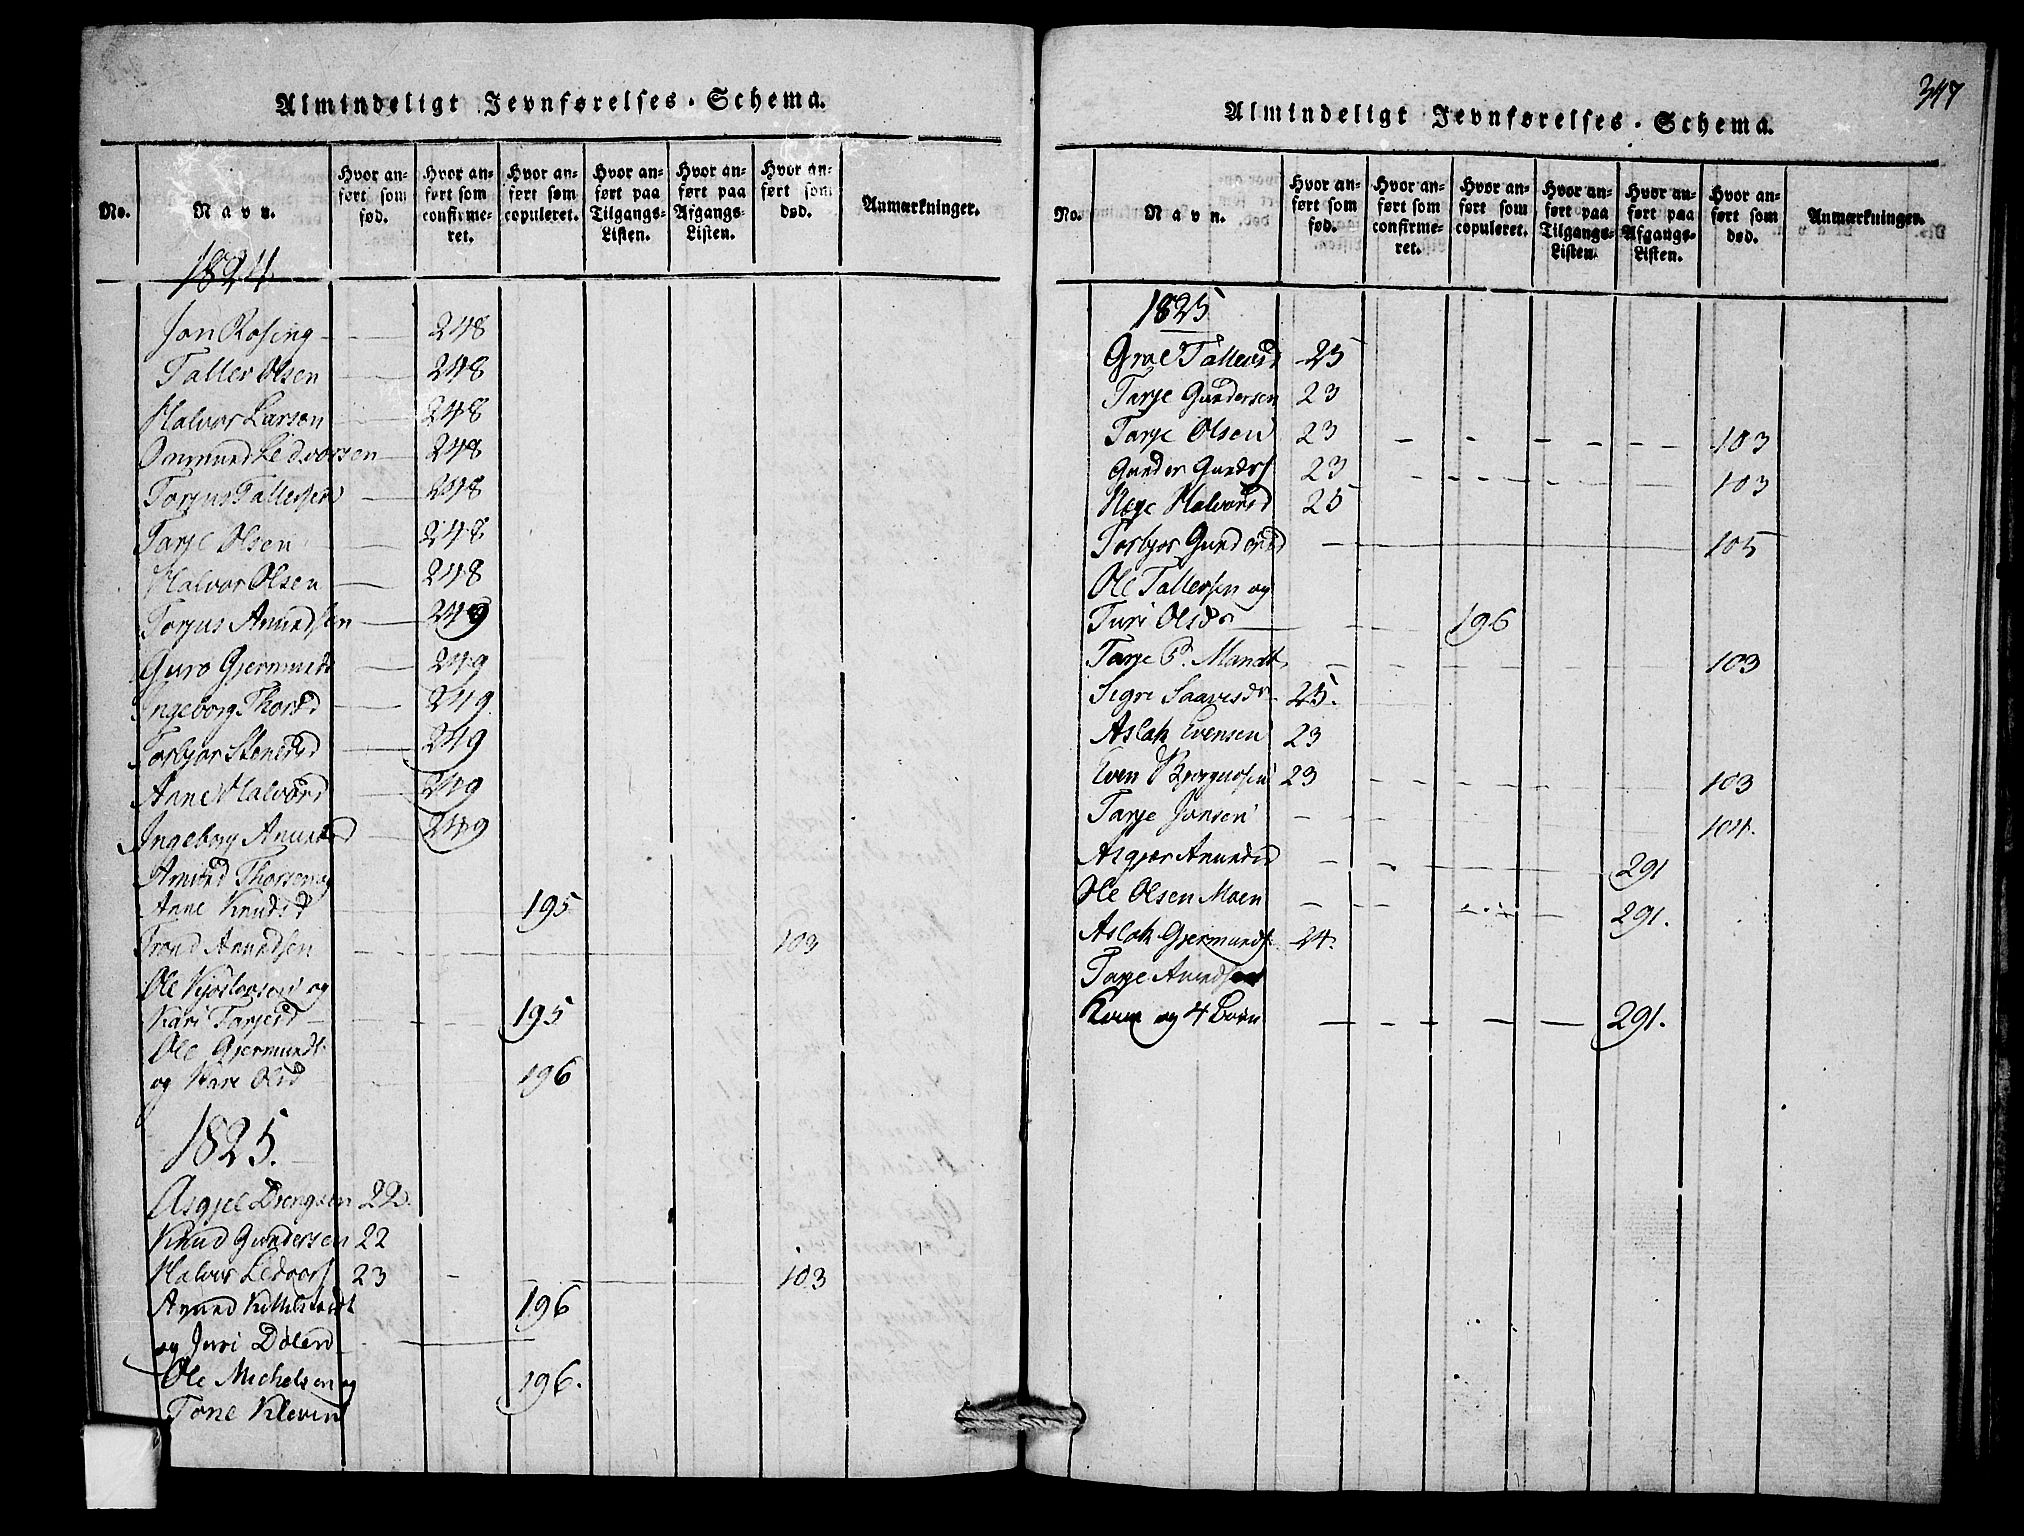 Almindeligt Jevnførelses-Schema.
No.
Navn.
Hvor an-
ført som
fød.
Hvor an-
ført som
confirme-
ret.
Hvor an-
ført som
copuleret.
Hvor an-
ført paa
Tilgangs-
Listen.
Hvor an-
ført paa
Afgangs-
Listen.
Hvor an-
ført som
død.
Anmærkninger.
1824
Jon Rosing 248
Taller Olsen 248
Halvor Larsen 248
Ommund Ledvorsen 248
Torjus Tallefsen 248
Tarje Olsen 248
Halvor Olsen 248
Torjus Anundsen 249
Guro Gjermunds 249
Ingeborg Thorsd 249
Torbjor Stenersd 249
Anne Halvorsd 249
Ingeborg Anundsd 249
Anund Thorsen og
Anne Knudsd 195
Trond Anundsen 103
Ole og
Kari Tarjesd 195
Ole Gjermunds
og Kari Olsd 196
1825.
Asgjel Drengsen 22.
Knud Gundersen 22
Halvor Ledvors 23 103
Anund 196
og Juri
Ole Michelsen og 196.
Tone Kleven
347
Almindeligt Jevnførelses-Schema.
No.
Navn.
Hvor an-
ført som
fød.
Hvor an-
ført som
confirme-
ret.
Hvor an-
ført som
copuleret.
Hvor an-
ført paa
Tilgangs-
Listen.
Hvor an-
ført paa
Afgangs-
Listen.
Hvor an-
ført som
død.
Anmærkninger.
1825
Groe Tallevsd 25
Tarje Gundersen 23
Tarje Olsen 23 103
Gunder Gunders 23 103
Hæge Halvorsd 25
Torbjor Gundersd 105
Ole Tallefsen og
Turi Olsdr 196
Tarje P. Mandt 103
Sigri Saavesdr 25.
Aslak Evensen 23
Even 23 103
Tarje Jonsen 104.
Asgjær Anundsd 291
Ole Olsen Moen 291.
Aslak Gjermunds 24.
Tarje Anundsen
Kone og 4 Børn 291.